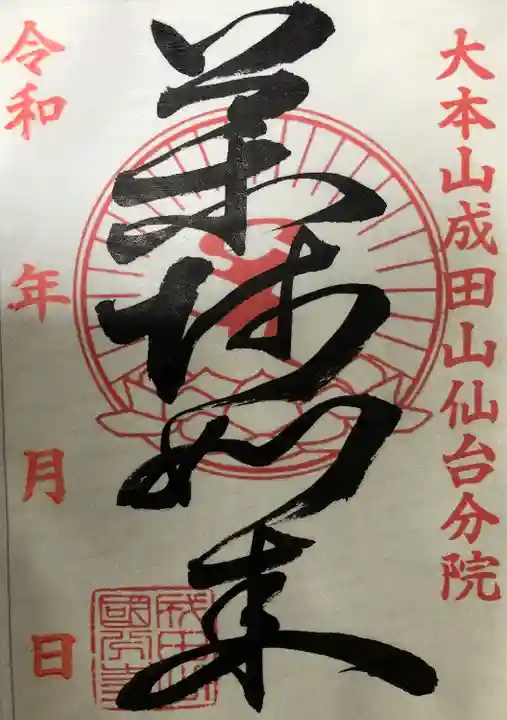 大本山成田山仙台分院
薬師如来
令和 年 月 日
成田山
國分寺